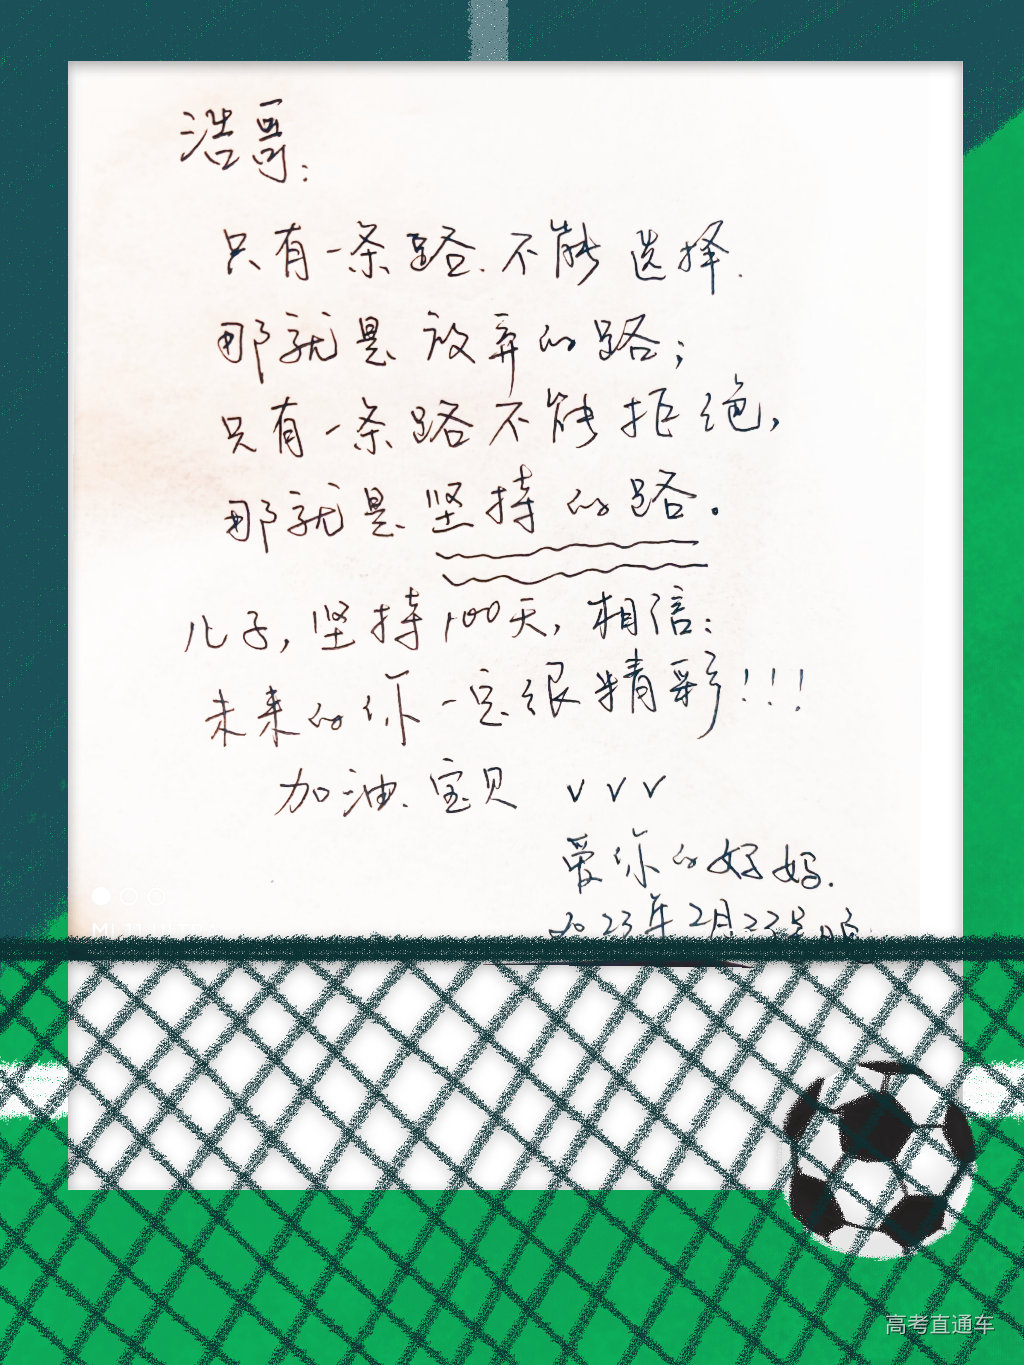 浩哥:
只有一条路.不能选择.
那就是放弃的路;
只有一条路不能拒绝,
那就是坚持的路.
儿子,坚持100天,相信:
未来的你一定很精彩!!!
加油.宝贝 ✓✓✓
爱你的好妈.
2023年2月23号晚
高考直通车